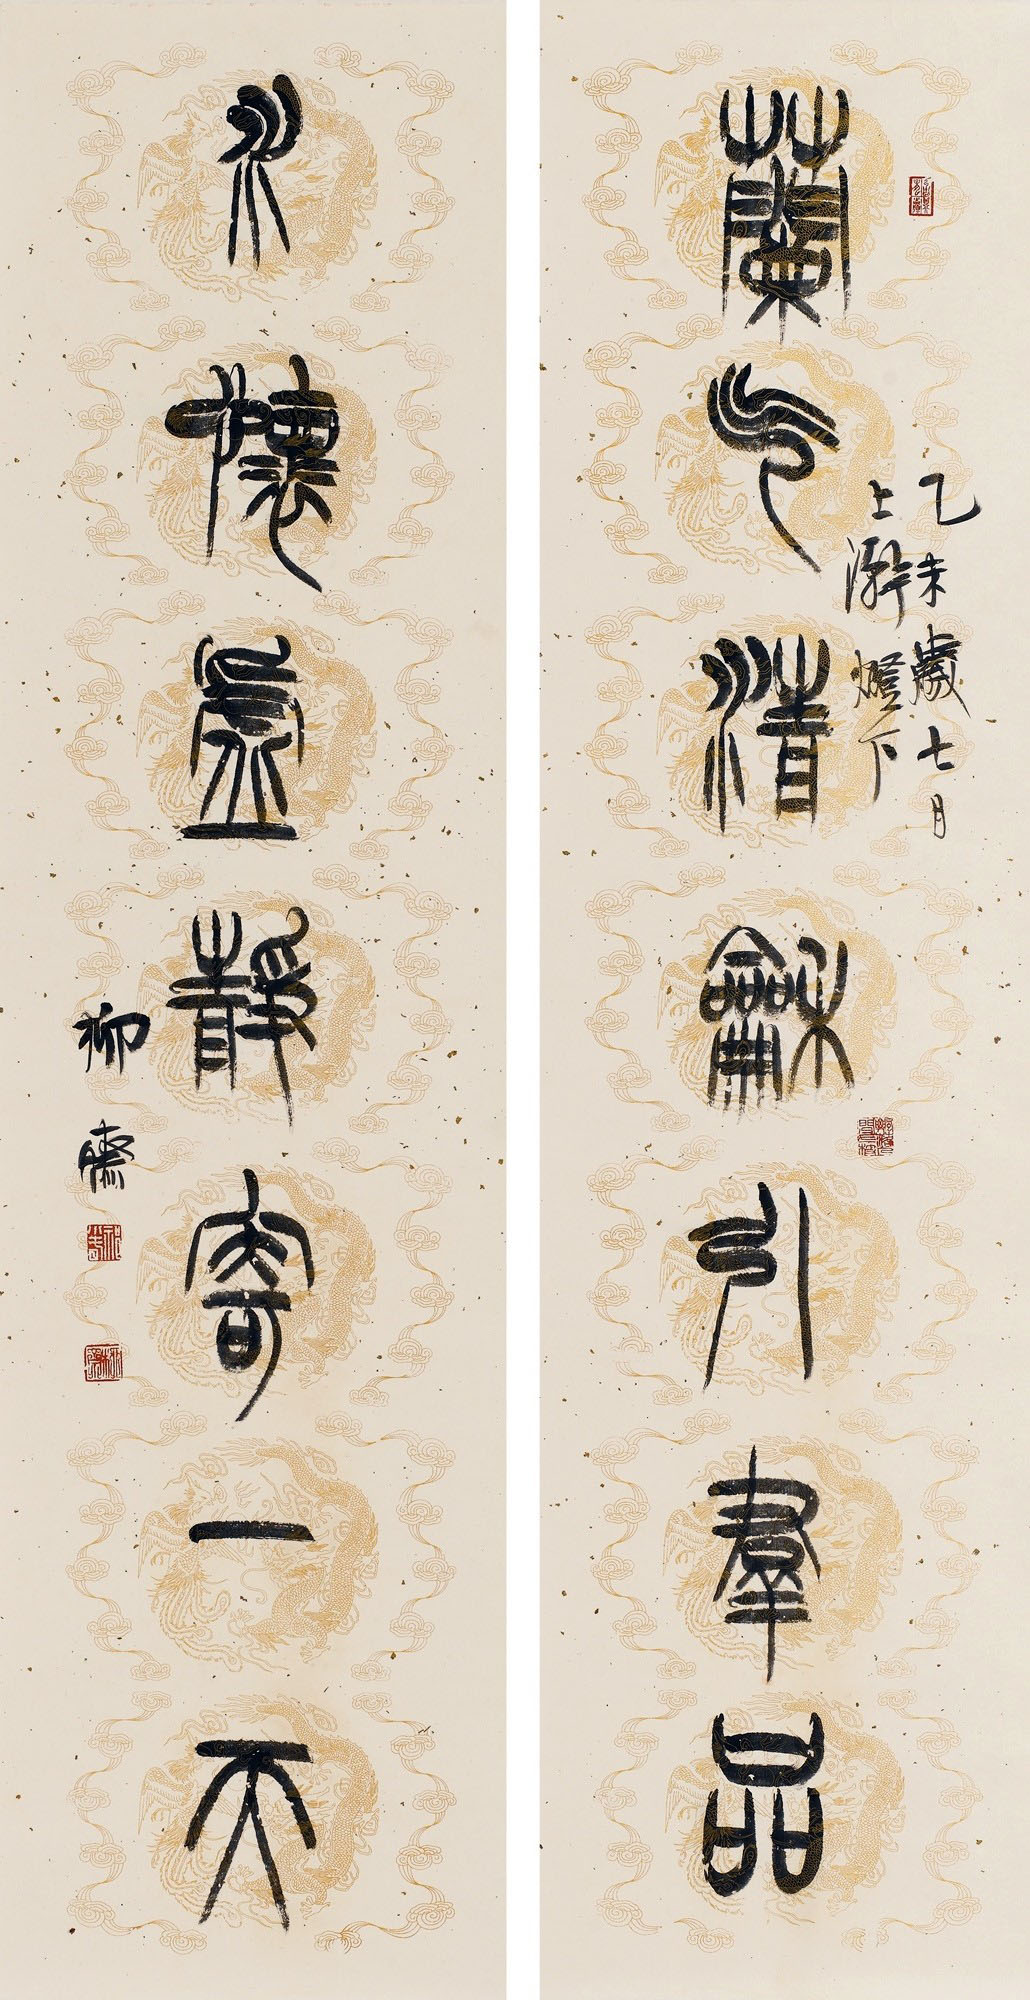 蘭气清龢引羣品
乙未歲七月
上澣燈下
永懷虛靜寄一天
柳齋